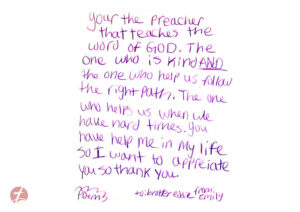 your the preacher
that teaches the
word of GOD. The
one who is kind AND
the one who help us follow
the right path. The one
who helps us when we
have hard times. you
have help me in my life
so I want to appreciate
you so thank you.
Poems
to: brother
from: emily